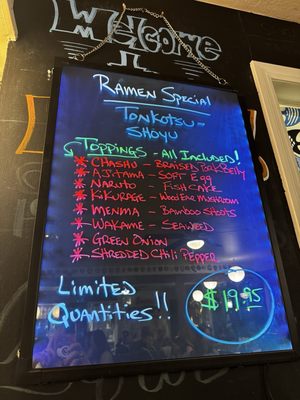 Welcome
Ramen Special
Tonkotsu-
Shoyu
Toppings - All Included!
* Chashu - Braised Pork Belly
* Ajitama - Soft Egg
* Naruto - Fish Cake
* Kikurage - Wood Ear Mushroom
* Menma - Bamboo Shoots
* Wakame - Seaweed
* Green Onion
* Shredded Chili Pepper
Limited
Quantities!!
$19.95